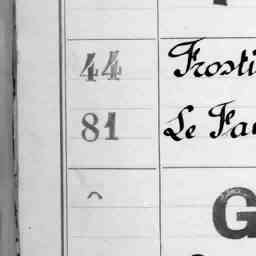 44 Frosti
81 Le Fa
G